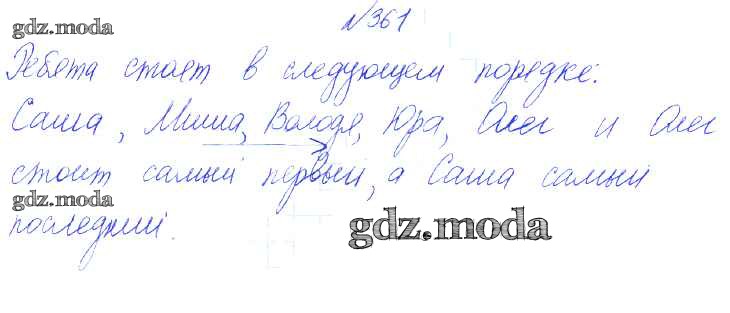 №361
gdz.moda
Ребята стоят в следующем порядке:
Саша, Миша, Володя, Юра, Олег и Олег
стоит самый первый, а Саша самый
gdz.moda
последний.
gdz.moda